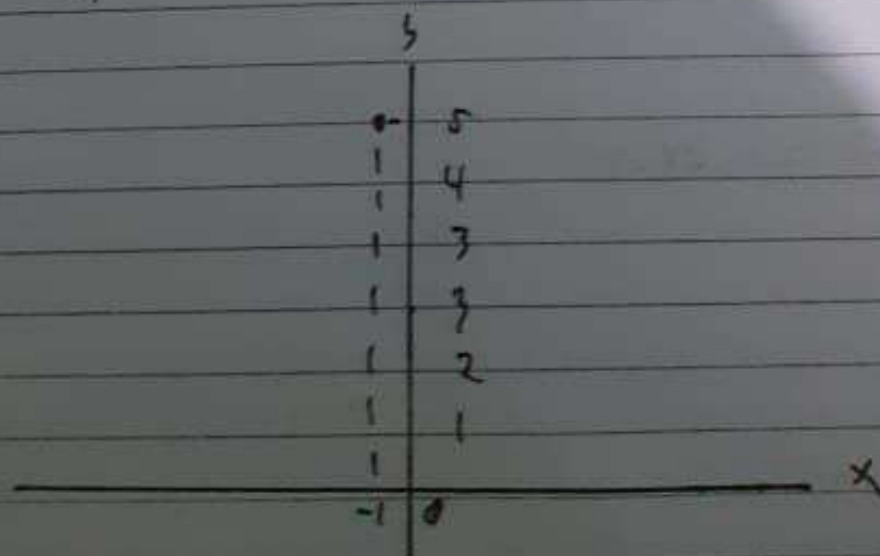 5
4
3
3
2
1
x
-1 0